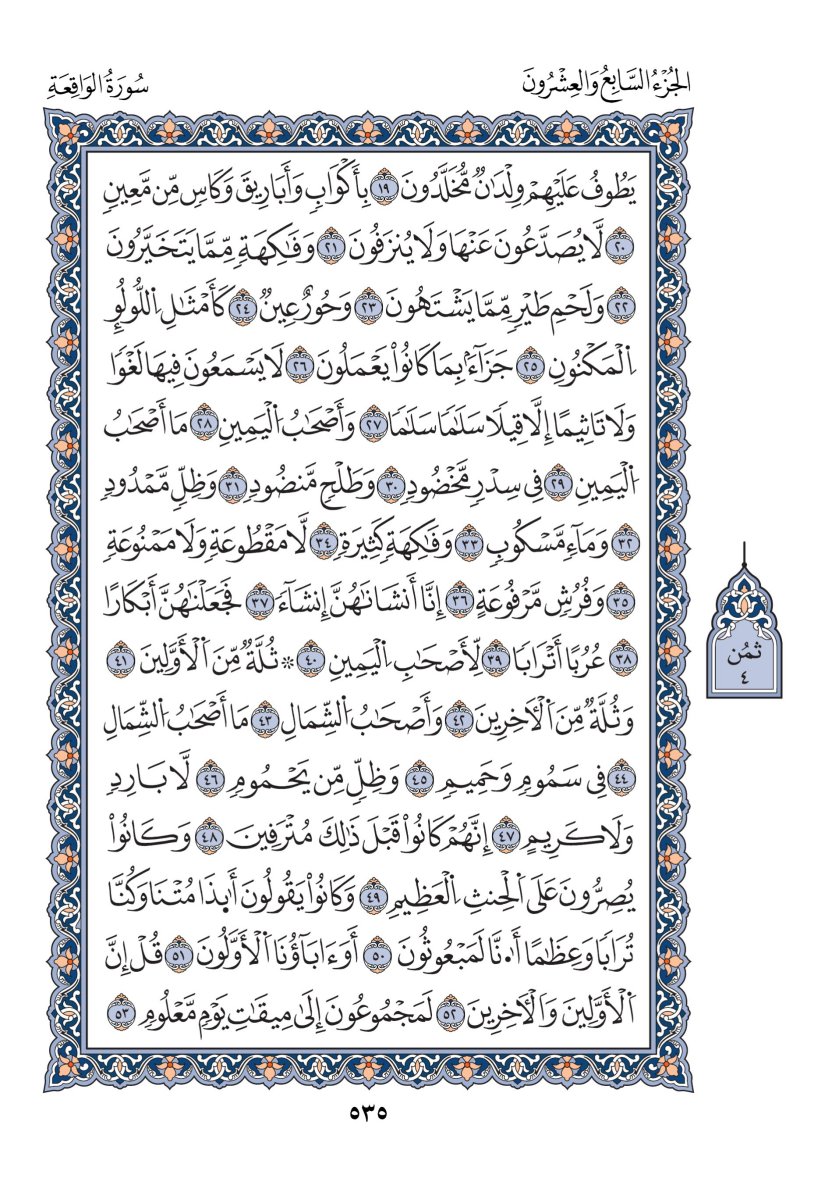 الجُزْءُ السَّابِعُ وَالعِشْرُونَ
سُورَةُ الوَاقِعَةِ
يَطُوفُ عَلَيْهِمْ وِلْدَٰنٌ مُّخَلَّدُونَ ١٩ بِأَكْوَابٍ وَأَبَارِيقَ وَكَاسٍ مِّن مَّعِينٍ
٢٠ لَّا يُصَدَّعُونَ عَنْهَا وَلَا يُنزَفُونَ ٢١ وَفَٰكِهَةٍ مِّمَّا يَتَخَيَّرُونَ
٢٢ وَلَحْمِ طَيْرٍ مِّمَّا يَشْتَهُونَ ٢٣ وَحُورٌ عِينٌ ٢٤ كَأَمْثَٰلِ اِ۬للُّولُوِٕ
اِ۬لْمَكْنُونِ ٢٥ جَزَآءَۢ بِمَا كَانُواْ يَعْمَلُونَ ٢٦ لَا يَسْمَعُونَ فِيهَا لَغْوًا
وَلَا تَاثِيمًا إِلَّا قِيلًا سَلَٰمًا سَلَٰمًا ٢٧ وَأَصْحَٰبُ اُ۬لْيَمِينِ ٢٨ مَا أَصْحَٰبُ
اُ۬لْيَمِينِ ٢٩ فِي سِدْرٍ مَّخْضُودٍ ٣٠ وَطَلْحٍ مَّنضُودٍ ٣١ وَظِلٍّ مَّمْدُودٍ
٣٢ وَمَآءٍ مَّسْكُوبٍ ٣٣ وَفَٰكِهَةٍ كَثِيرَةٍ ٣٤ لَّا مَقْطُوعَةٍ وَلَا مَمْنُوعَةٍ
٣٥ وَفُرُشٍ مَّرْفُوعَةٍ ٣٦ إِنَّا أَنشَانَٰهُنَّ إِنشَآءً ٣٧ فَجَعَلْنَٰهُنَّ أَبْكَارًا
٣٨ عُرُبًا أَتْرَابًا ٣٩ لِّأَصْحَٰبِ اِ۬لْيَمِينِ ٤٠ * ثُلَّةٌ مِّنَ اَ۬لْأَوَّلِينَ ٤١
وَثُلَّةٌ مِّنَ اَ۬لْأٓخِرِينَ ٤٢ وَأَصْحَٰبُ اُ۬لشِّمَالِ ٤٣ مَا أَصْحَٰبُ اُ۬لشِّمَالِ
٤٤ فِي سَمُومٍ وَحَمِيمٍ ٤٥ وَظِلٍّ مِّن يَحْمُومٍ ٤٦ لَّا بَارِدٍ
وَلَا كَرِيمٍ ٤٧ إِنَّهُمْ كَانُواْ قَبْلَ ذَٰلِكَ مُتْرَفِينَ ٤٨ وَكَانُواْ
يُصِرُّونَ عَلَى اَ۬لْحِنثِ اِ۬لْعَظِيمِ ٤٩ وَكَانُواْ يَقُولُونَ أَىِٕذَا مُتْنَا وَكُنَّا
تُرَابًا وَعِظَٰمًا أَ•نَّا لَمَبْعُوثُونَ ٥٠ أَوَءَابَآؤُنَا اَ۬لْأَوَّلُونَ ٥١ قُلْ إِنَّ
اَ۬لْأَوَّلِينَ وَاَلْأٓخِرِينَ ٥٢ لَمَجْمُوعُونَ إِلَىٰ مِيقَٰتِ يَوْمٍ مَّعْلُومٍ ٥٣
ثُمُن
٤
٥٣٥